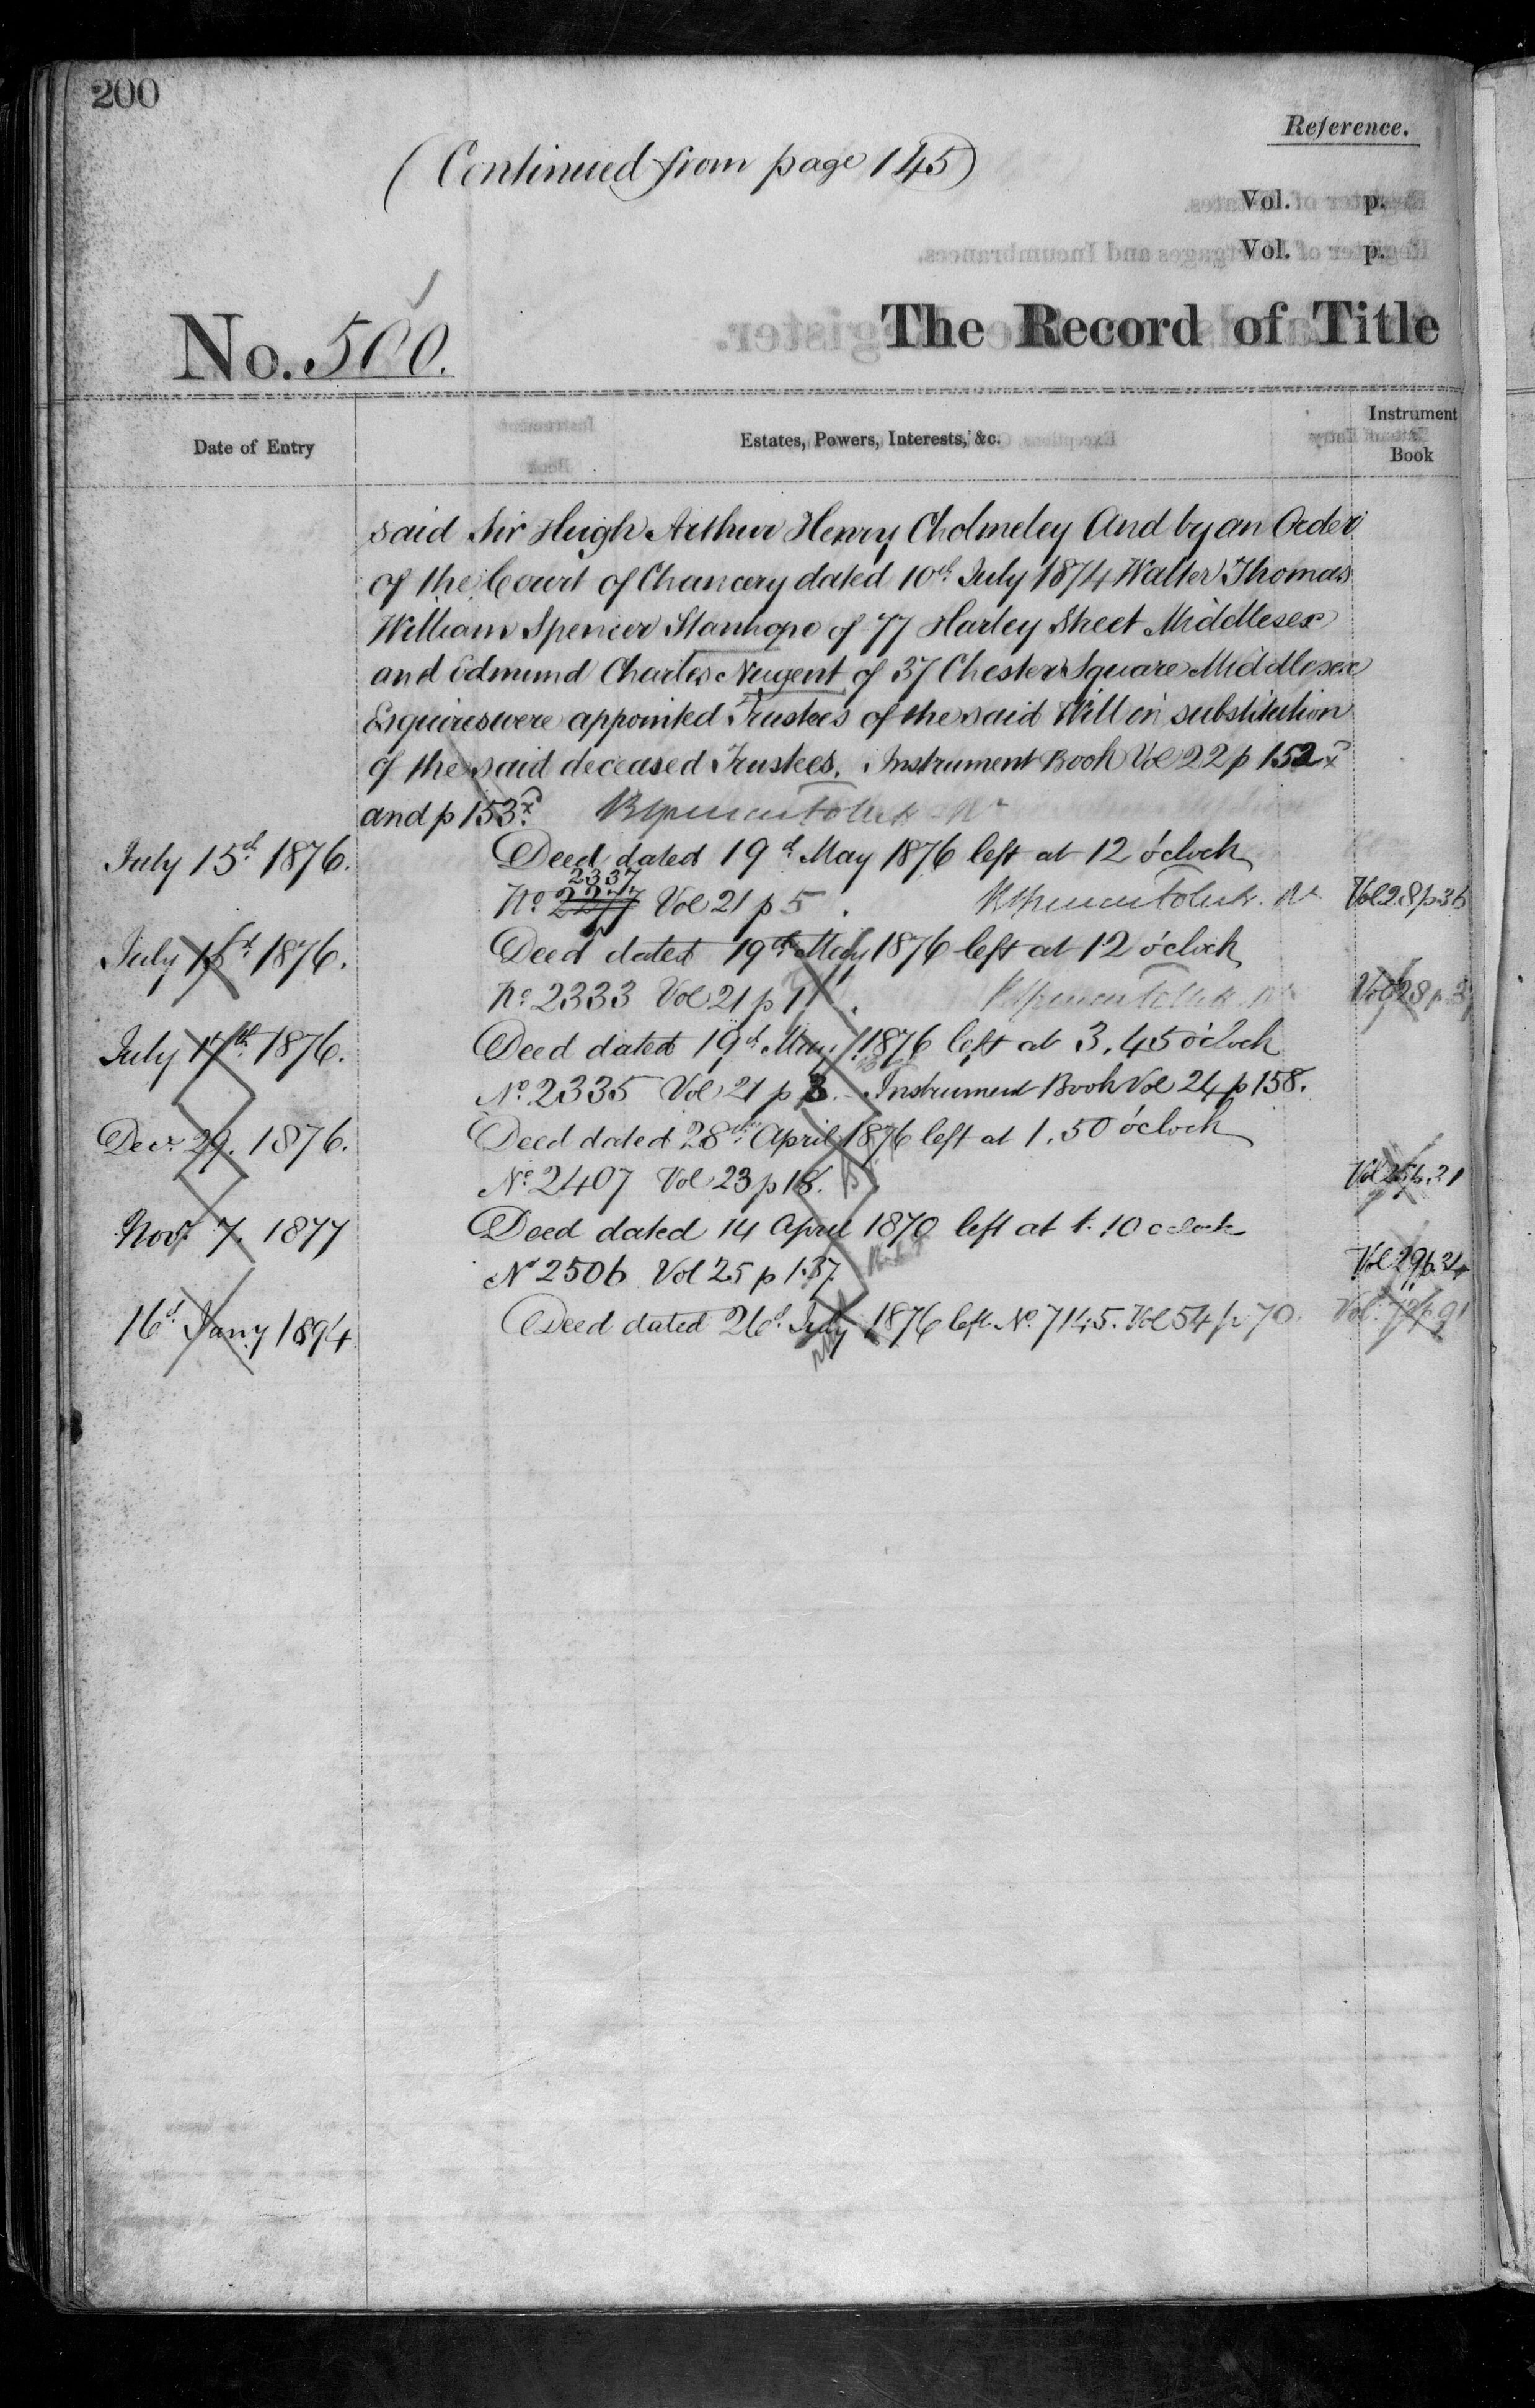 200
Reference.
(Continued from page 145)
Vol. p.
Vol. p.
No. 500.
The Record of Title
Date of Entry
Estates, Powers, Interests, &c.
Instrument
Book
said Sir Hugh Arthur Henry Cholmeley And by an Order
of the Court of Chancery dated 10th July 1874 Walter Thomas
William Spencer Stanhope of 77 Harley Street Middlesex
and Edmund Charles Nugent of 37 Chester Square Middlesex
Esquires were appointed Trustees of the said Will in substitution
of the said deceased Trustees. Instrument Book Vol 22 p 152
and p 153
July 15th 1876. Deed dated 19th May 1876 left at 12 o'clock
2337
No. 2277 Vol 21 p 5. Vol 28 p 36
July 15th 1876. Deed dated 19th May 1876 left at 12 o'clock
No. 2333 Vol 21 p 1. Vol 28 p
July 17th 1876. Deed dated 19th May 1876 left at 3.45 o'clock
No. 2335 Vol 21 p 3. Instrument Book Vol 24 p 158.
Decr 29. 1876. Deed dated 28th April 1876 left at 1.50 o'clock
No. 2407 Vol 23 p 18. Vol 25 p. 21
Novr 7. 1877 Deed dated 14 April 1870 left at 1.10 o'clock
No 2506 Vol 25 p 137. Vol 29 p. 34
16th Jany 1894 Deed dated 26th July 1876 left No. 7145. Vol 54 p. 70. Vol. 72 p. 91